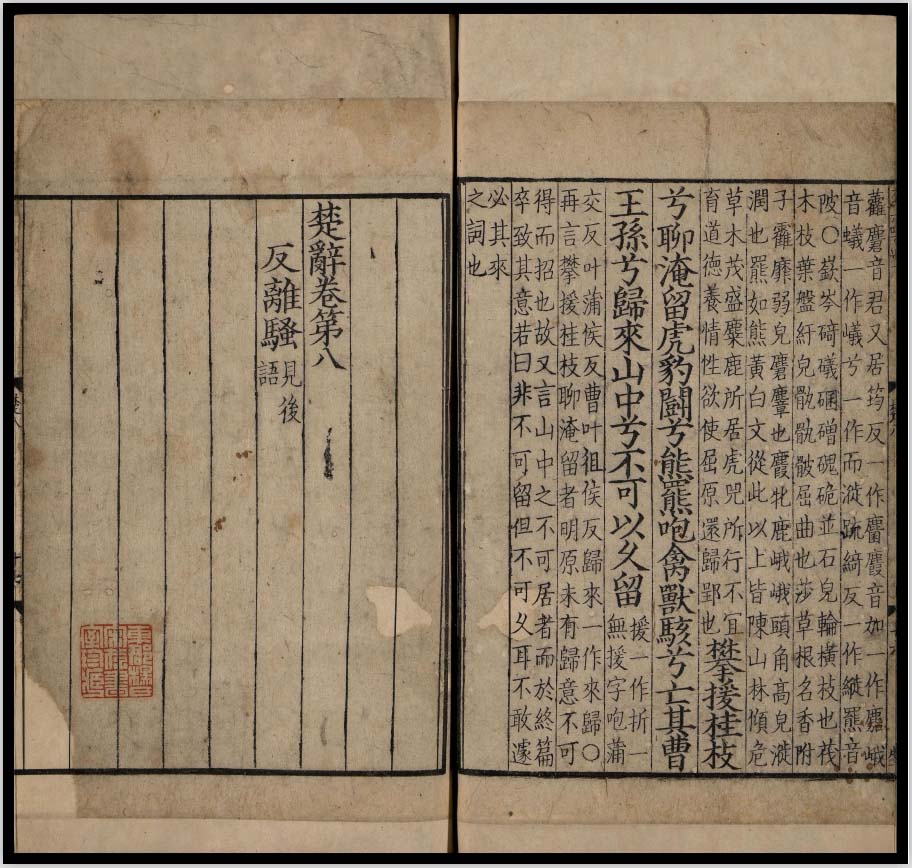 虇麏音君又居筠反一作麕麚音加一作麢峨
音蟻一作嶬兮一作而漇疏綺反一作縰羆音
陂〇嶔岑碕礒碅磳磈硊並石皃輪橫枝也茷
木枝葉盤紆皃骫骩骳屈曲也莎草根名香附
子靃靡弱皃麏麞也麚牝鹿峨峨頭角高皃漇
潤也羆如熊黃白文從此以上皆陳山林傾危
草木茂盛麋鹿所居虎兕所行不宜
育道德養情性欲使屈原還歸郢也
攀援桂枝
兮聊淹留虎豹鬬兮熊羆咆禽獸駭兮亡其曹
王孫兮歸來山中兮不可以久留
援一作折一
無援字咆蒲
交反叶蒲侯反曹叶徂侯反歸來一作來歸〇
再言攀援桂枝聊淹留者明原未有歸意不可
得而招也故又言山中之不可居者而於終篇
卒致其意若曰非不可留但不可久耳不敢遽
必其來
之詞也
楚辭卷第八
反離騷
見後
語